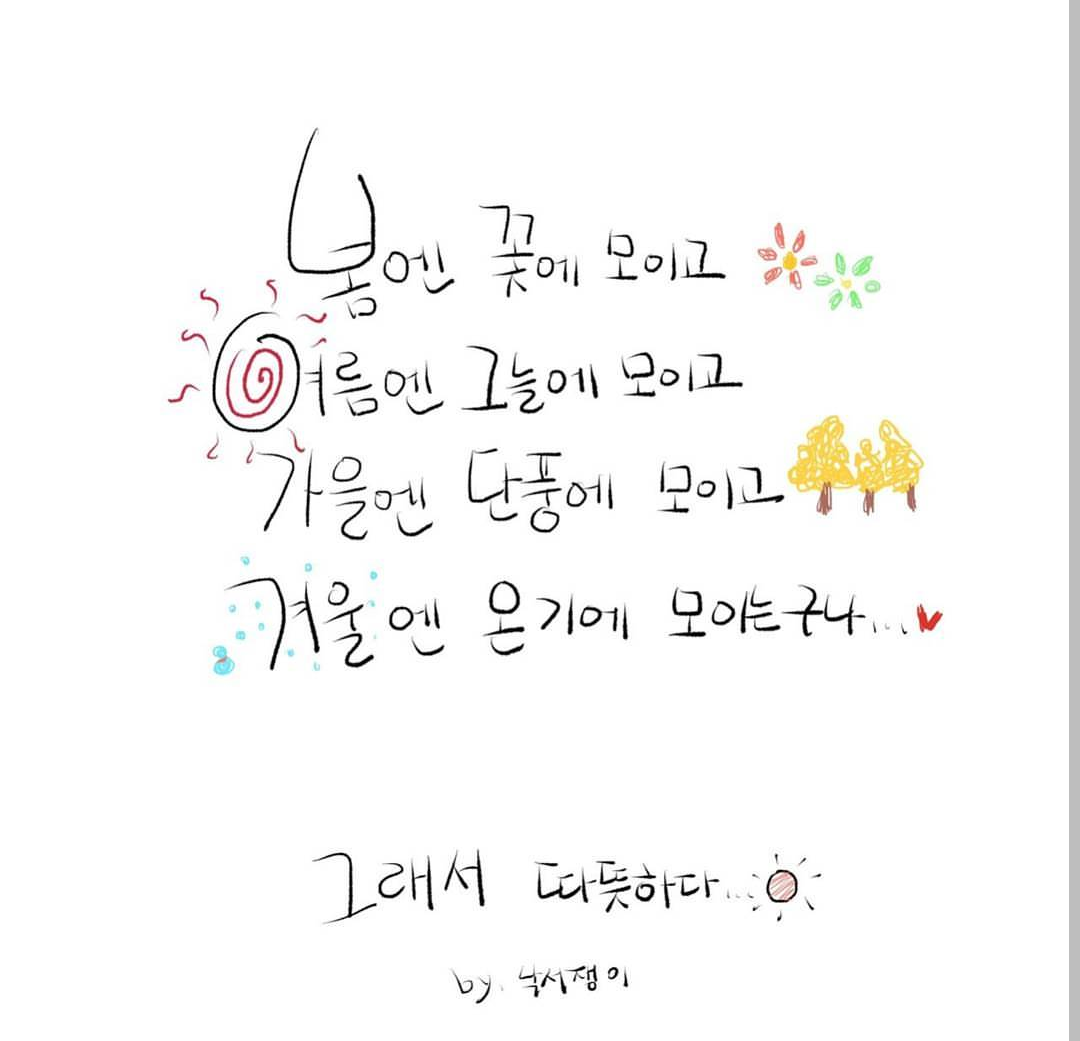 봄엔 꽃에 모이고
여름엔 그늘에 모이고
가을엔 단풍에 모이고
겨울엔 온기에 모이는구나...
그래서 따뜻하다...
by. 낙서쟁이